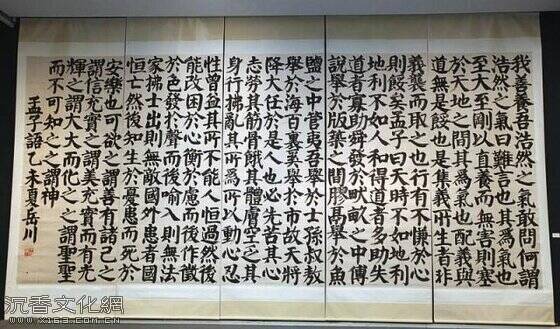 我善養吾浩然之氣敢問何謂
浩然之氣曰難言也其爲氣也
至大至剛以直養而無害則塞
於天地之間其爲氣也配義與
道無是餒也是集義所生者非
義襲而取之也行有不慊於心
則餒矣孟子曰天時不如地利
地利不如人和得道者多助失
道者寡助舜發於畎畝之中傅
説舉於版築之間膠鬲舉於魚
鹽之中管夷吾舉於士孫叔敖
舉於海百裏奚舉於市故天將
降大任於是人也必先苦其心
志勞其筋骨餓其體膚空乏其
身行拂亂其所爲所以動心忍
性曾益其所不能人恒過然後
能改困於心衡於慮而後作徵
於色發於聲而後喻入則無法
家拂士出則無敵國外患者國
恒亡然後知生於憂患而死於
安樂也可欲之謂善有諸己之
謂信充實之謂美充實而有光
輝之謂大大而化之之謂聖聖
而不可知之之謂神
孟子語乙未夏岳川
沉香文化網
www.x163.com.cn